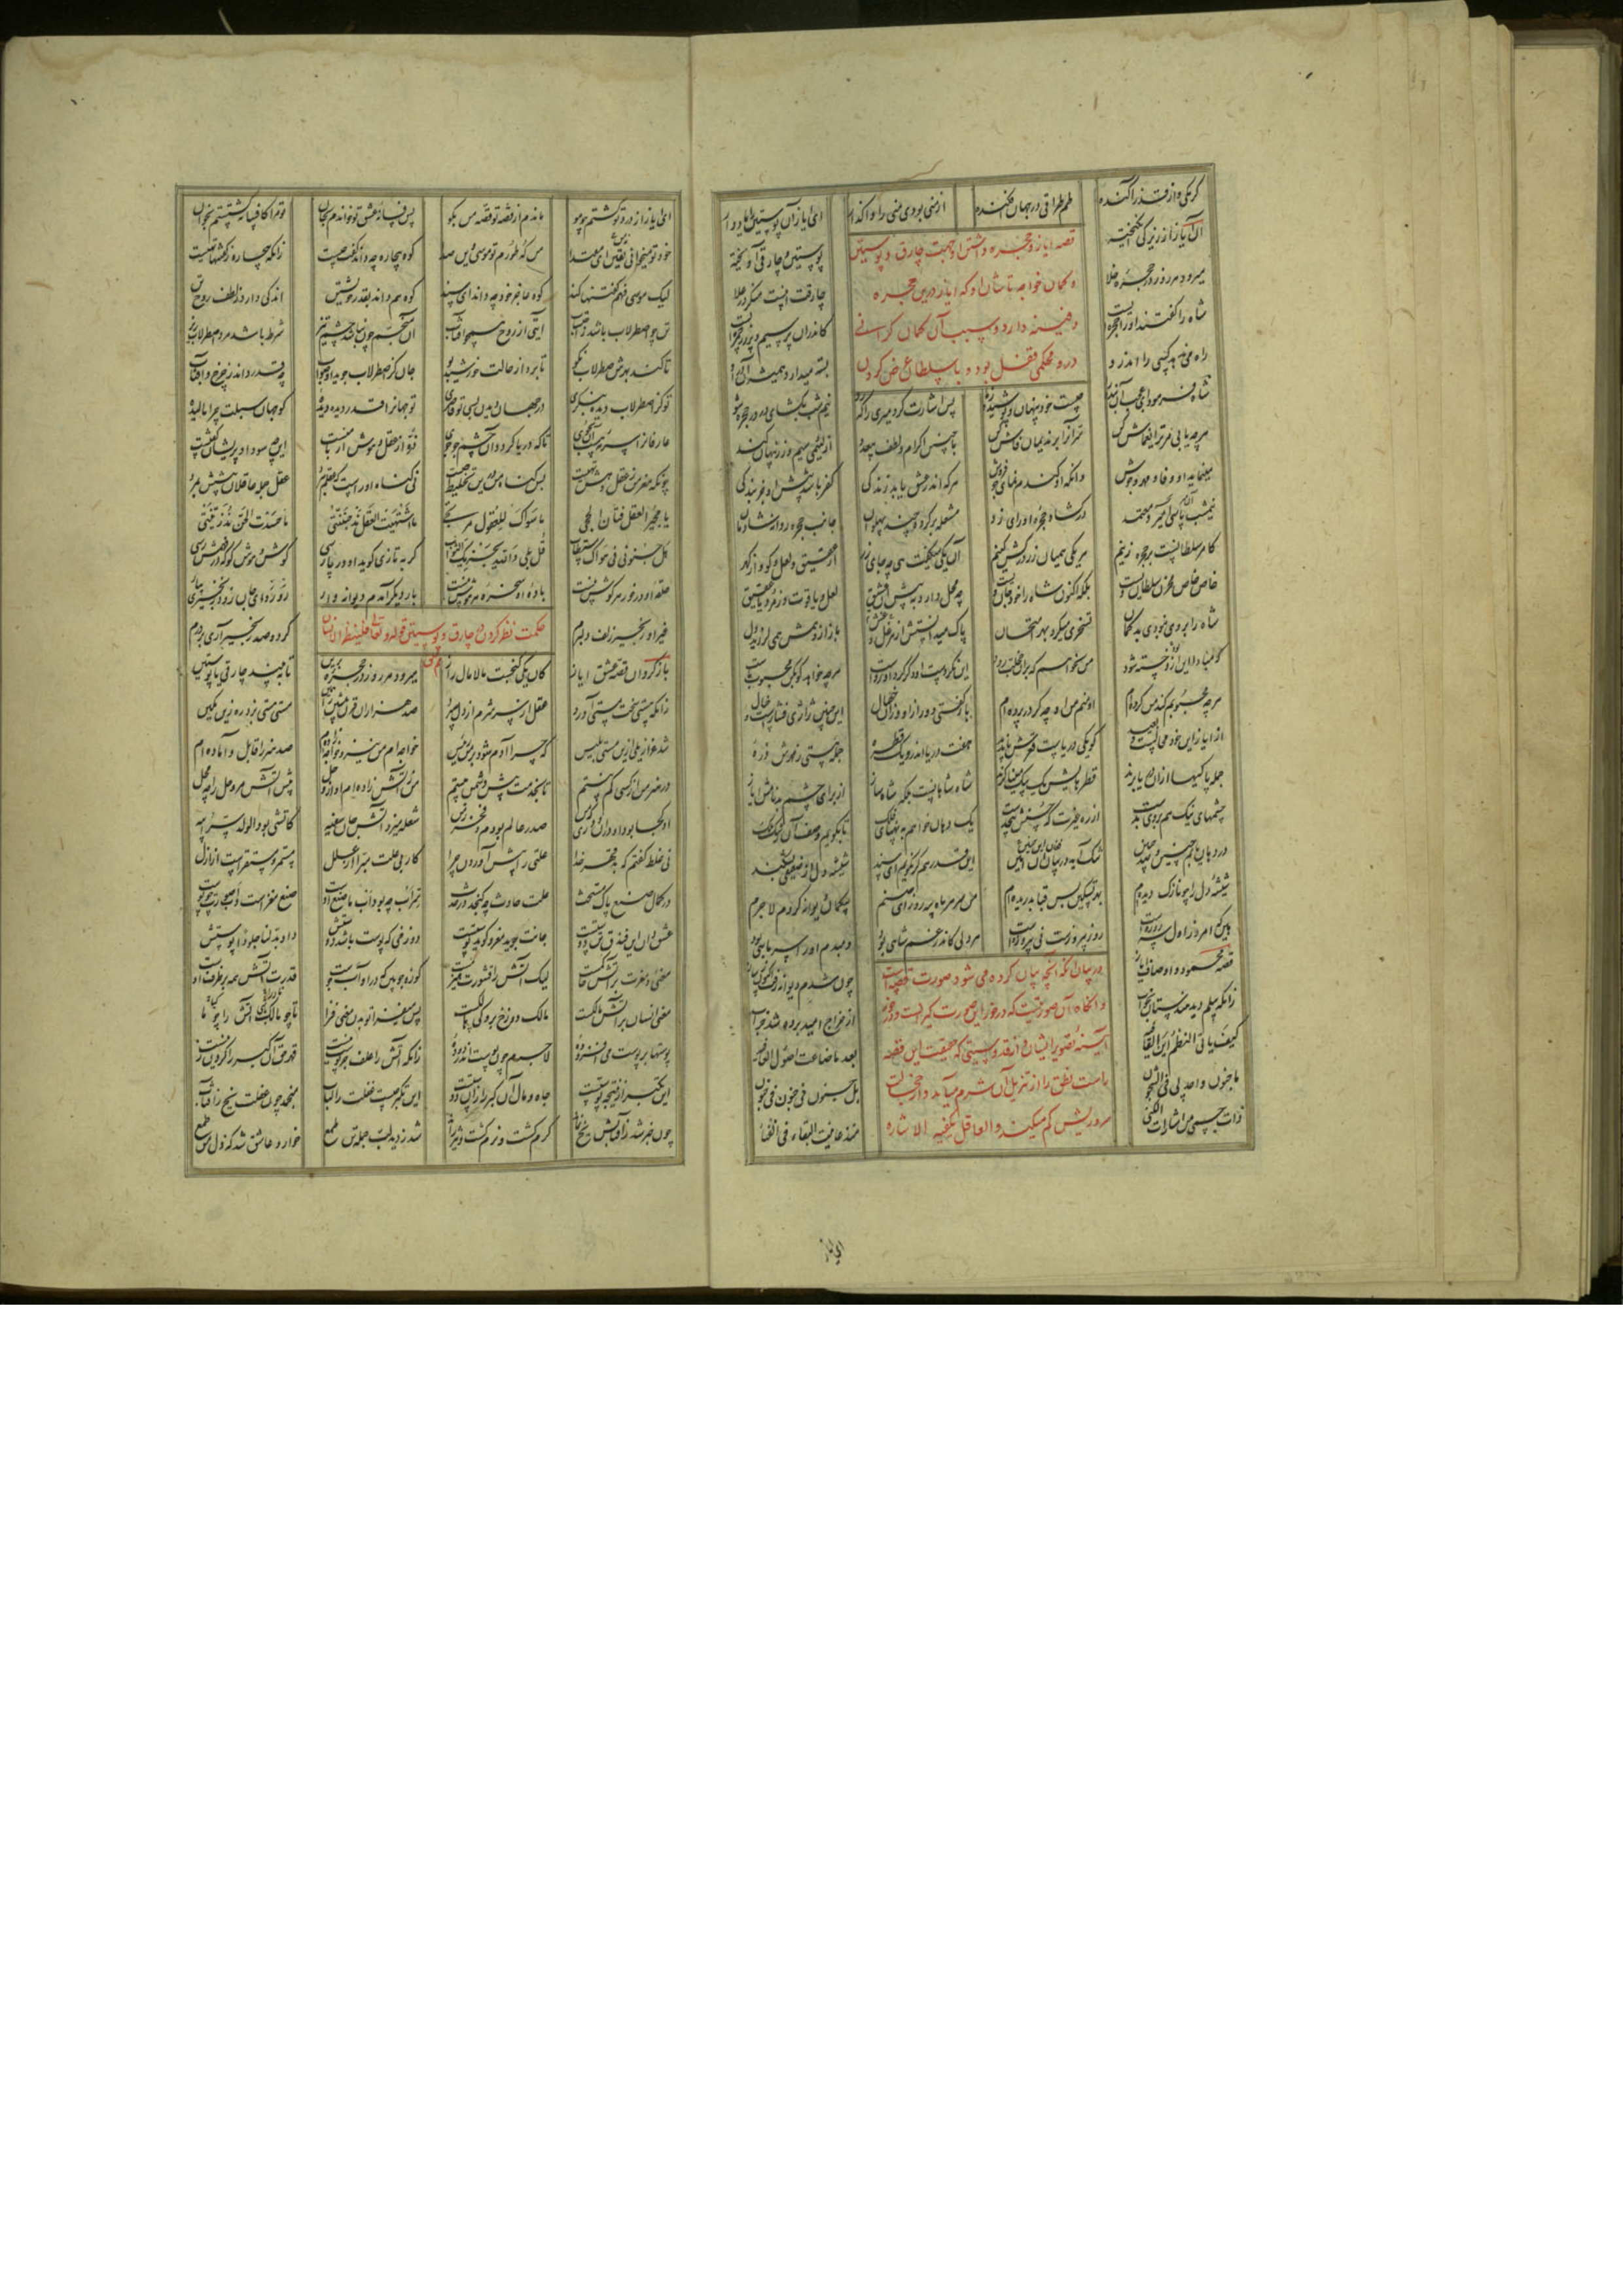 گر منی وازفتد زآکنده طمطراقی در جهان افکنده از منی بودی منی را واگذار ای ایاز آن پوستین را یاد آر
قصه ایاز و حجره داشتن او جهت چارق و پوستین
و گمان خواجه تاشان او که ایاز در این حجره
دفینه دارد و سبب آن گمان گرانی
در و محکمی قفل بود و با سلطان عرض کردن
آن ایاز از زیرکی انگیخته پوستین و چارقی آویخته
میرود هر روز در حجره خلا چارقت اینست منگر در علا
شاه را گفتند او را حجره ایست کاندران پر سیم و زر و خمره ایست
راه می ندهد کسی را اندرو بسته میدارد همیشه آن در او
شاه فرمود ای عجب آن بنده را چیست خود پنهان و پوشیده ز ما پس اشارت کرد میری را که رو نیم شب بگشای در در حجره شو
هرچه یابی مر ترا یغماش کن سر او را بر ندیمان فاش کن با چنین اکرام و لطف بیعدد از لئیمی سیم و زر پنهان کند
مینماید او وفا و مهر و جوش وانگه او گندم نمای جو فروش هرکه اندر عشق یابد زندگی کفر باشد پیش او جز بندگی
نیمشب آن میر باسی معتمد در گشاد حجره او رای زد مشعله بر کرد و چندین پهلوان جانب حجره روانه شادمان
کامر سلطانست بر حجره زنیم هر یکی همیان زر در کش کنیم آن یکی میگفت هی چه جای زر از عقیق و لعل گو و از گهر
خاص خاص مخزن سلطان ویست بلکه اکنون شاه را خود جان ویست چه محل دارد به پیش این عشیق لعل و یاقوت و زمرد یا عقیق
شاه را بر وی نبودی بد گمان تسخری میکرد بهر امتحان پاک میدانستش از هر غش و غل باز از وهمش همی لرزید دل
که مبادا کاین بود خسته شود من نخواهم که برو خجلت رود این نکردست او و گر کرد او رواست هرچه خواهد گو بکن محبوب ماست
هرچه محبوبم کند من کرده ام او منم من او چه گر در پرده ام باز گفتی دور از آن خو و خصال این چنین تخلیط ژاژست و خیال
از ایاز این خود محالست و بعید کو یکی دریاست قعرش ناپدید هفت دریا اندرو یک قطره جمله هستی ز موجش ذره
جمله پاکیها از آن دریا برند قطرهایش یک بیک میناگرند شاه شاهانست بلکه شاه ساز از برای چشم بد نامش ایاز
چشمهای نیک هم بر وی بدست از ره غیرت که حسنش بیحدست یک دهان خواهم به پهنای فلک تا بگویم وصف آن رشک ملک
ور دهان یابم چنین و صد چنین تنگ آید در بیان آن امین این قدر هم گر نگویم ای سند شیشه دل از ضعیفی بشکند
شیشه دل را چو نازک دیده ام بهر تسکین بس قبا بدریده ام من سر هر ماه سه روز ای صنم بیگمان دیوانه گردم لاجرم
هین که امروز اول سه روزه است روز پیروزست نی پیروزه است هر دلی کاندر غم شاهی بود دمبدم او را سر ماهی بود
قصه محمود و اوصاف ایاز چون شدم دیوانه رفت اکنون ز ساز
در بیان آنکه آنچه بیان کرده می شود صورت قصه است
و آنگاه آن صورتیست که در خور این صورت گیرانست و در خور
آینه تصویر ایشان و از قدوسیتی که حقیقت این قصه
راست نطق را از تنزیل آن شرم می آید و از خجالت
سر و ریش گم میکند و العاقل تکفیه الاشاره
زانکه پیلم دید هندستان بخواب از خراج امید بر ده شد خراب
کیف یأتی النظم لی والقافیه بعد ما ضاعت اصول العافیه
ما جنون واحد لی فی الشجون بل جنون فی جنون فی جنون
ذاب جسمی من اشارات الکنی منذ عاینت البقاء فی الفنا
ای ایاز
ای ایاز از درد تو گشتم چو مو ماندم از قصه تو قصه من بگو بس فسانه عشق تو خواندم بجان تو مرا کافسانه گشتستم بخوان
خود تو میخوانی نه من ای مقتدا من که طورم تو موسی وین صدا کوه بیچاره چه داند گفت چیست زانکه بیچاره ز گفتها تهیست
لیک موسی فهم گفتنها کند کوه عاجز خود چه داند ای سند کوه هم داند بقدر خویشتن اندکی دارد ز لطف روح تن
تن چو اصطرلاب باشد ز احتساب آیتی از روح همچو آفتاب آن منجم چون نباشد چشم تیز شرط باشد مرد اصطرلاب ریز
تا کند بهرش صطرلابی نکو تا برد از حالت خورشید بو جان کز اصطرلاب جوید او صواب چه قدر داند ز چرخ و آفتاب
تو کز اصطرلاب دیده بنگری در جهان دیدن بسی تو قاصری تو جهان را قدر دیده دیده کو جهان سبلت چرا مالیده
عارفان را سرمه هست آن بجوی تا که دریا گردد آن چشم چو جوی ذره از عقل و هوش ار با منست این چه سودا و پریشان گفتنست
چونکه مغز من ز عقل و هش تهیست پس گناه من درین تخلیط چیست نی گناه او راست که عقلم ببرد عقل جمله عاقلان پیشش بمرد
یا مجیر العقل فتان الحجی ما سواک للعقول مرتجی ما اشتهیت العقل مذ جننتنی ما حسدت الحسن مذ زینتنی
هل جنونی فی هواک مستطاب قل بلی والله یجزیک الثواب گر به تازی گوید او ور پارسی گوش و هوشی کو که در فهمش رسی
باده او در خور هر هوش نیست حلقه او سخره هر گوش نیست بار دیگر آمدم دیوانه وار رو رو ای جان زود زنجیری بیار
غیر آن زنجیر زلف دلبرم گر دو صد زنجیر آری بر درم
حکمت نظر کردن در چارق و پوستین قوله تعالی فلینظر الانسان مم خلق
باز گردان قصه عشق ایاز کان یکی گنجست مالامال راز میرود هر روز در حجره برین تا ببیند چارقی با پوستین
زانکه هستی سخت مستی آورد عقل از سر شرم از دل میبرد صد هزاران قرن پیشین را همین مستی هستی بزد ره زین کمین
شد عزازیلی ازین مستی بلیس که چرا آدم شود بر من رئیس خواجه ام من نیز و خواجه زاده ام صد هنر را قابل و آماده ام
در هنر من از کسی کم نیستم تا بخدمت پیش دشمن بیستم من ز آتش زاده ام او از وحل پیش آتش مر وحل را چه محل
او کجا بود اندر آن دوری که من صدر عالم بودم و فخر زمن شعله میزد آتش جان سفیه کاتشی بود الولد سر ابیه
نی غلط گفتم که بد قهر خدا علتی را پیش آوردن چرا کار بی علت مبرا از علل مستمر و مستقرست از ازل
در کمال صنع پاک مستحث علت حادث چه گنجد در حدث سر آب چه بود آب ما صنع اوست صنع مغزست و آب صورت چو پوست
عشق دان ای فندق تن دوستت جانت جوید مغز و کوبد پوستت دوزخی که پوست باشد دوستش داد بدلنا جلودا پوستش
معنی و مغزت بر آتش حاکمست لیک آتش را قشورت هیزمست کوزه چوبین که در او آب جوست قدرت آتش همه بر ظرف اوست
معنی انسان بر آتش مالکست مالک دوزخ برو کی هالکست پس میفزا تو بدن معنی فزا تا چو مالک باشی آتش را کیا
پوستها بر پوست می افزوده لاجرم چون پوست اندر دوده زانکه آتش را علف جز پوست نیست قهر حق آن کبر را گردن زنیست
این تکبر از نتیجه پوستست جاه و مال آن کبر را زان دوستست این تکبر چیست غفلت از لباب منجمد چون غفلت یخ ز آفتاب
چون خبر شد ز آفتابش یخ نماند گرم گشت و نرم گشت و تیز راند شد ز دید لب جمله تن طمع خوار و عاشق شد که ذل من طمع